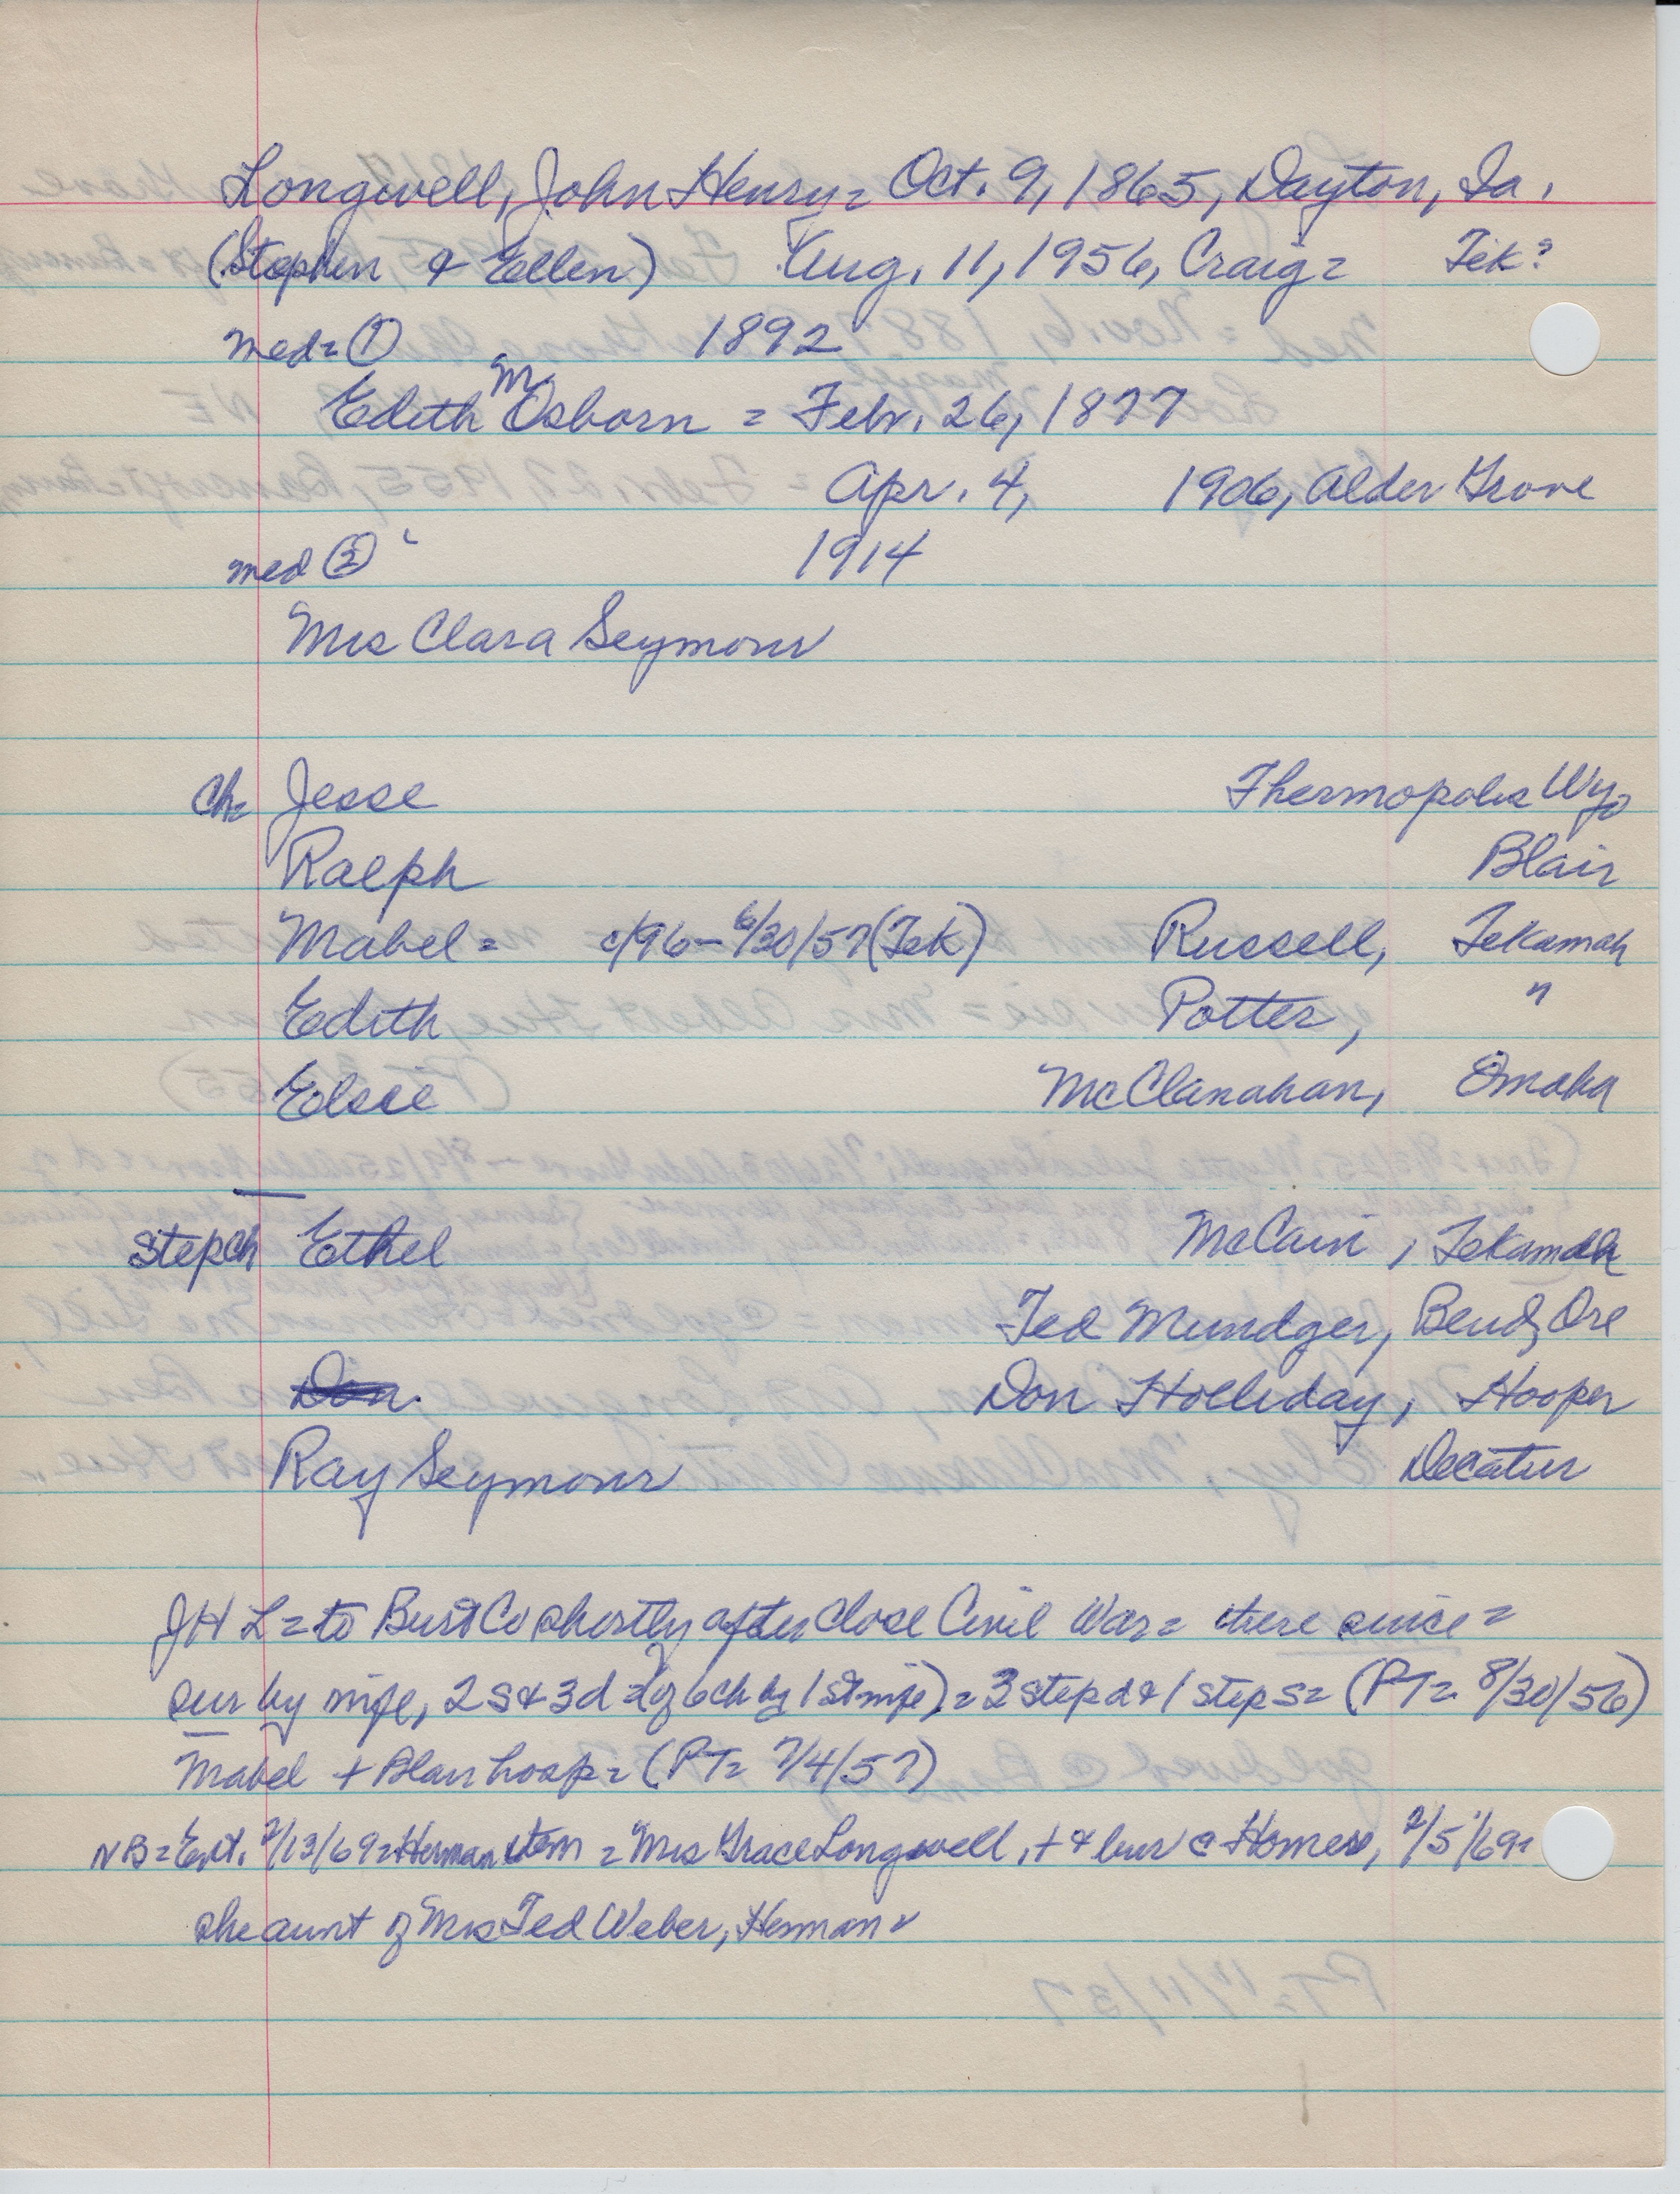 Longwell, John Henry = Oct. 9, 1865, Dayton, Ia.
(Stephen & Ellen) Aug. 11, 1956, Craig = Tek?
med = ① 1892
Edith M Osborn = Febr. 26, 1877
Apr. 4, 1906, Alder Grove
med ② 1914
Mrs Clara Seymour
Ch = Jesse Thermopolis Wyo
Ralph Blair
Mabel = c/96 - 6/30/57 (Tek) Russell, Tekamah
Edith Potter, "
Elsie McClanahan, Omaha
Stepch Ethel McCain, Tekamah
Ted Mundger, Bend, Ore
Don. Don Holliday, Hooper
Ray Seymour Decatur
JHL = to Burt Co shortly after close Civil War = there since =
sur by wife, 2 s & 3 d (of 6 ch by 1st wife) = 3 step d & 1 step s = (PT = 8/30/56)
Mabel + Blair hosp = (PT = 7/4/57)
NB = Ent. 2/13/69 = Herman item = Mrs Grace Longwell, + & bur @ Homer, 2/5/69 =
she aunt of Mrs Ted Weber, Herman